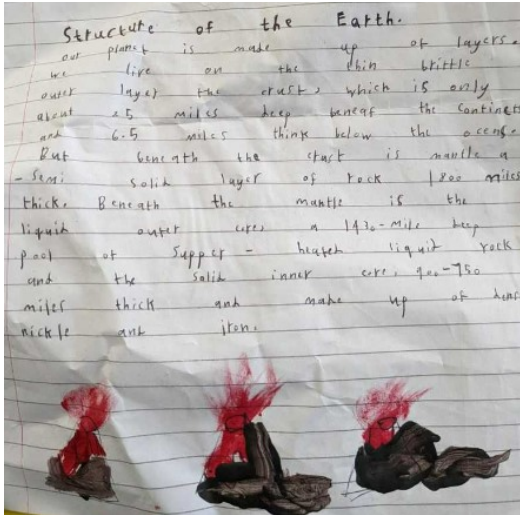 Structure of the Earth.
our planet is made up of layers.
we live on the thin brittle
outer layer the crust, which is only
about 25 miles deep beneaf the continets
and 6.5 miles think below the ocense
But beneath the crust is mantle a
- Semi solid layer of rock 1800 miles
thick. Beneath the mantle is the
liquid outer core, a 1430-mile deep
pool of Supper - heated liquid rock
and the solid inner core, 900-950
miles thick and made up of dens
nickle and iron.